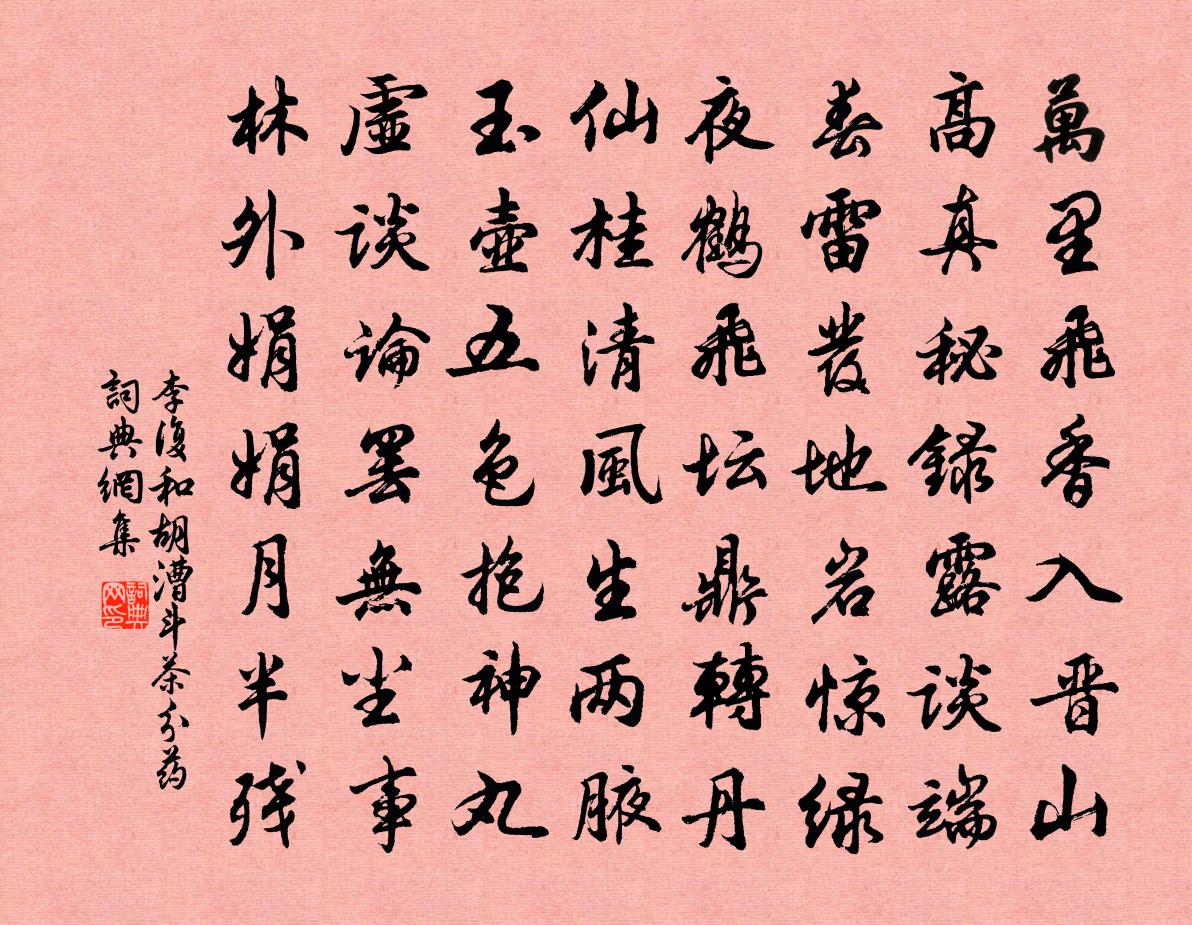 萬里飛香入晋山
高真秘録露談端
春雷發地岩惊緑
夜鶴飛坛鼎轉丹
仙桂清風生两腋
玉壺五色抱神丸
虚談論罢無坐事
林外娟娟月半残
李復和胡漕斗茶分药
詞典網集
詞典网印